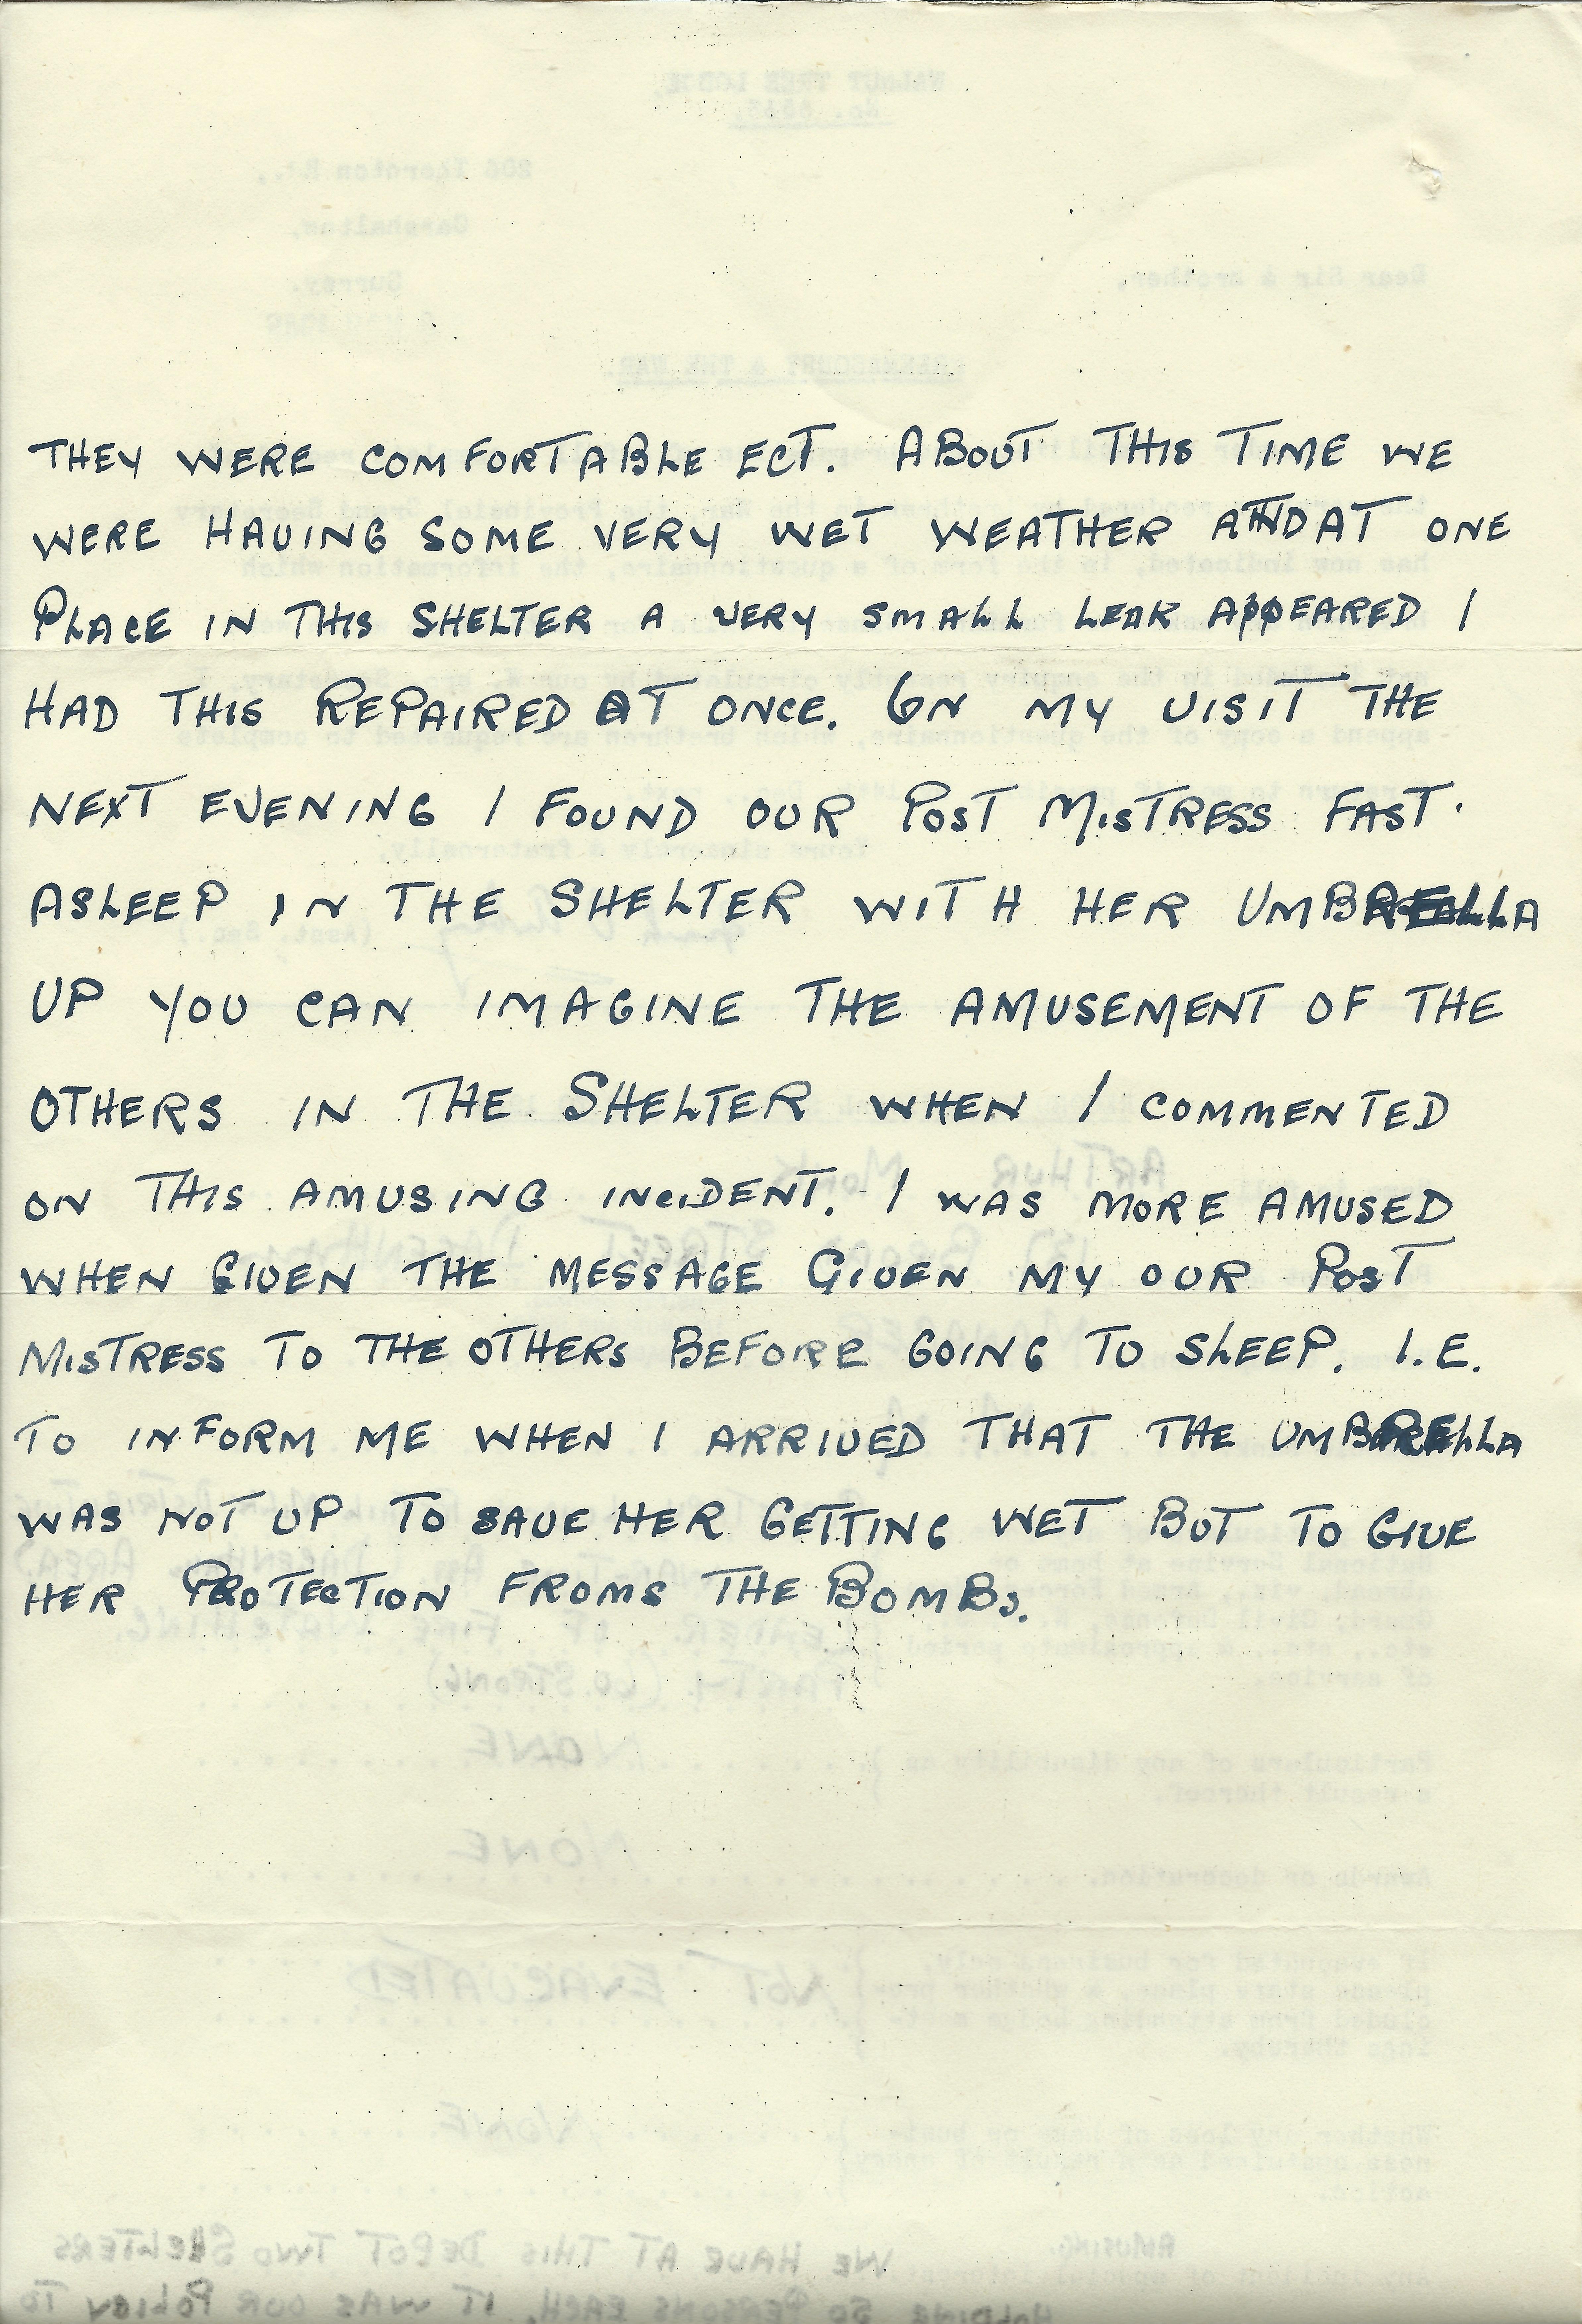 THEY WERE COMFORTABLE ECT. ABOUT THIS TIME WE
WERE HAVING SOME VERY WET WEATHER AND AT ONE
PLACE IN THIS SHELTER A VERY SMALL LEAK APPEARED I
HAD THIS REPAIRED AT ONCE. ON MY VISIT THE
NEXT EVENING I FOUND OUR POST MISTRESS FAST.
ASLEEP IN THE SHELTER WITH HER UMBRELLA
UP YOU CAN IMAGINE THE AMUSEMENT OF THE
OTHERS IN THE SHELTER WHEN I COMMENTED
ON THIS AMUSING INCIDENT. I WAS MORE AMUSED
WHEN GIVEN THE MESSAGE GIVEN MY OUR POST
MISTRESS TO THE OTHERS BEFORE GOING TO SLEEP. I.E.
TO INFORM ME WHEN I ARRIVED THAT THE UMBRELLA
WAS NOT UP TO SAVE HER GETTING WET BUT TO GIVE
HER PROTECTION FROMS THE BOMBS.